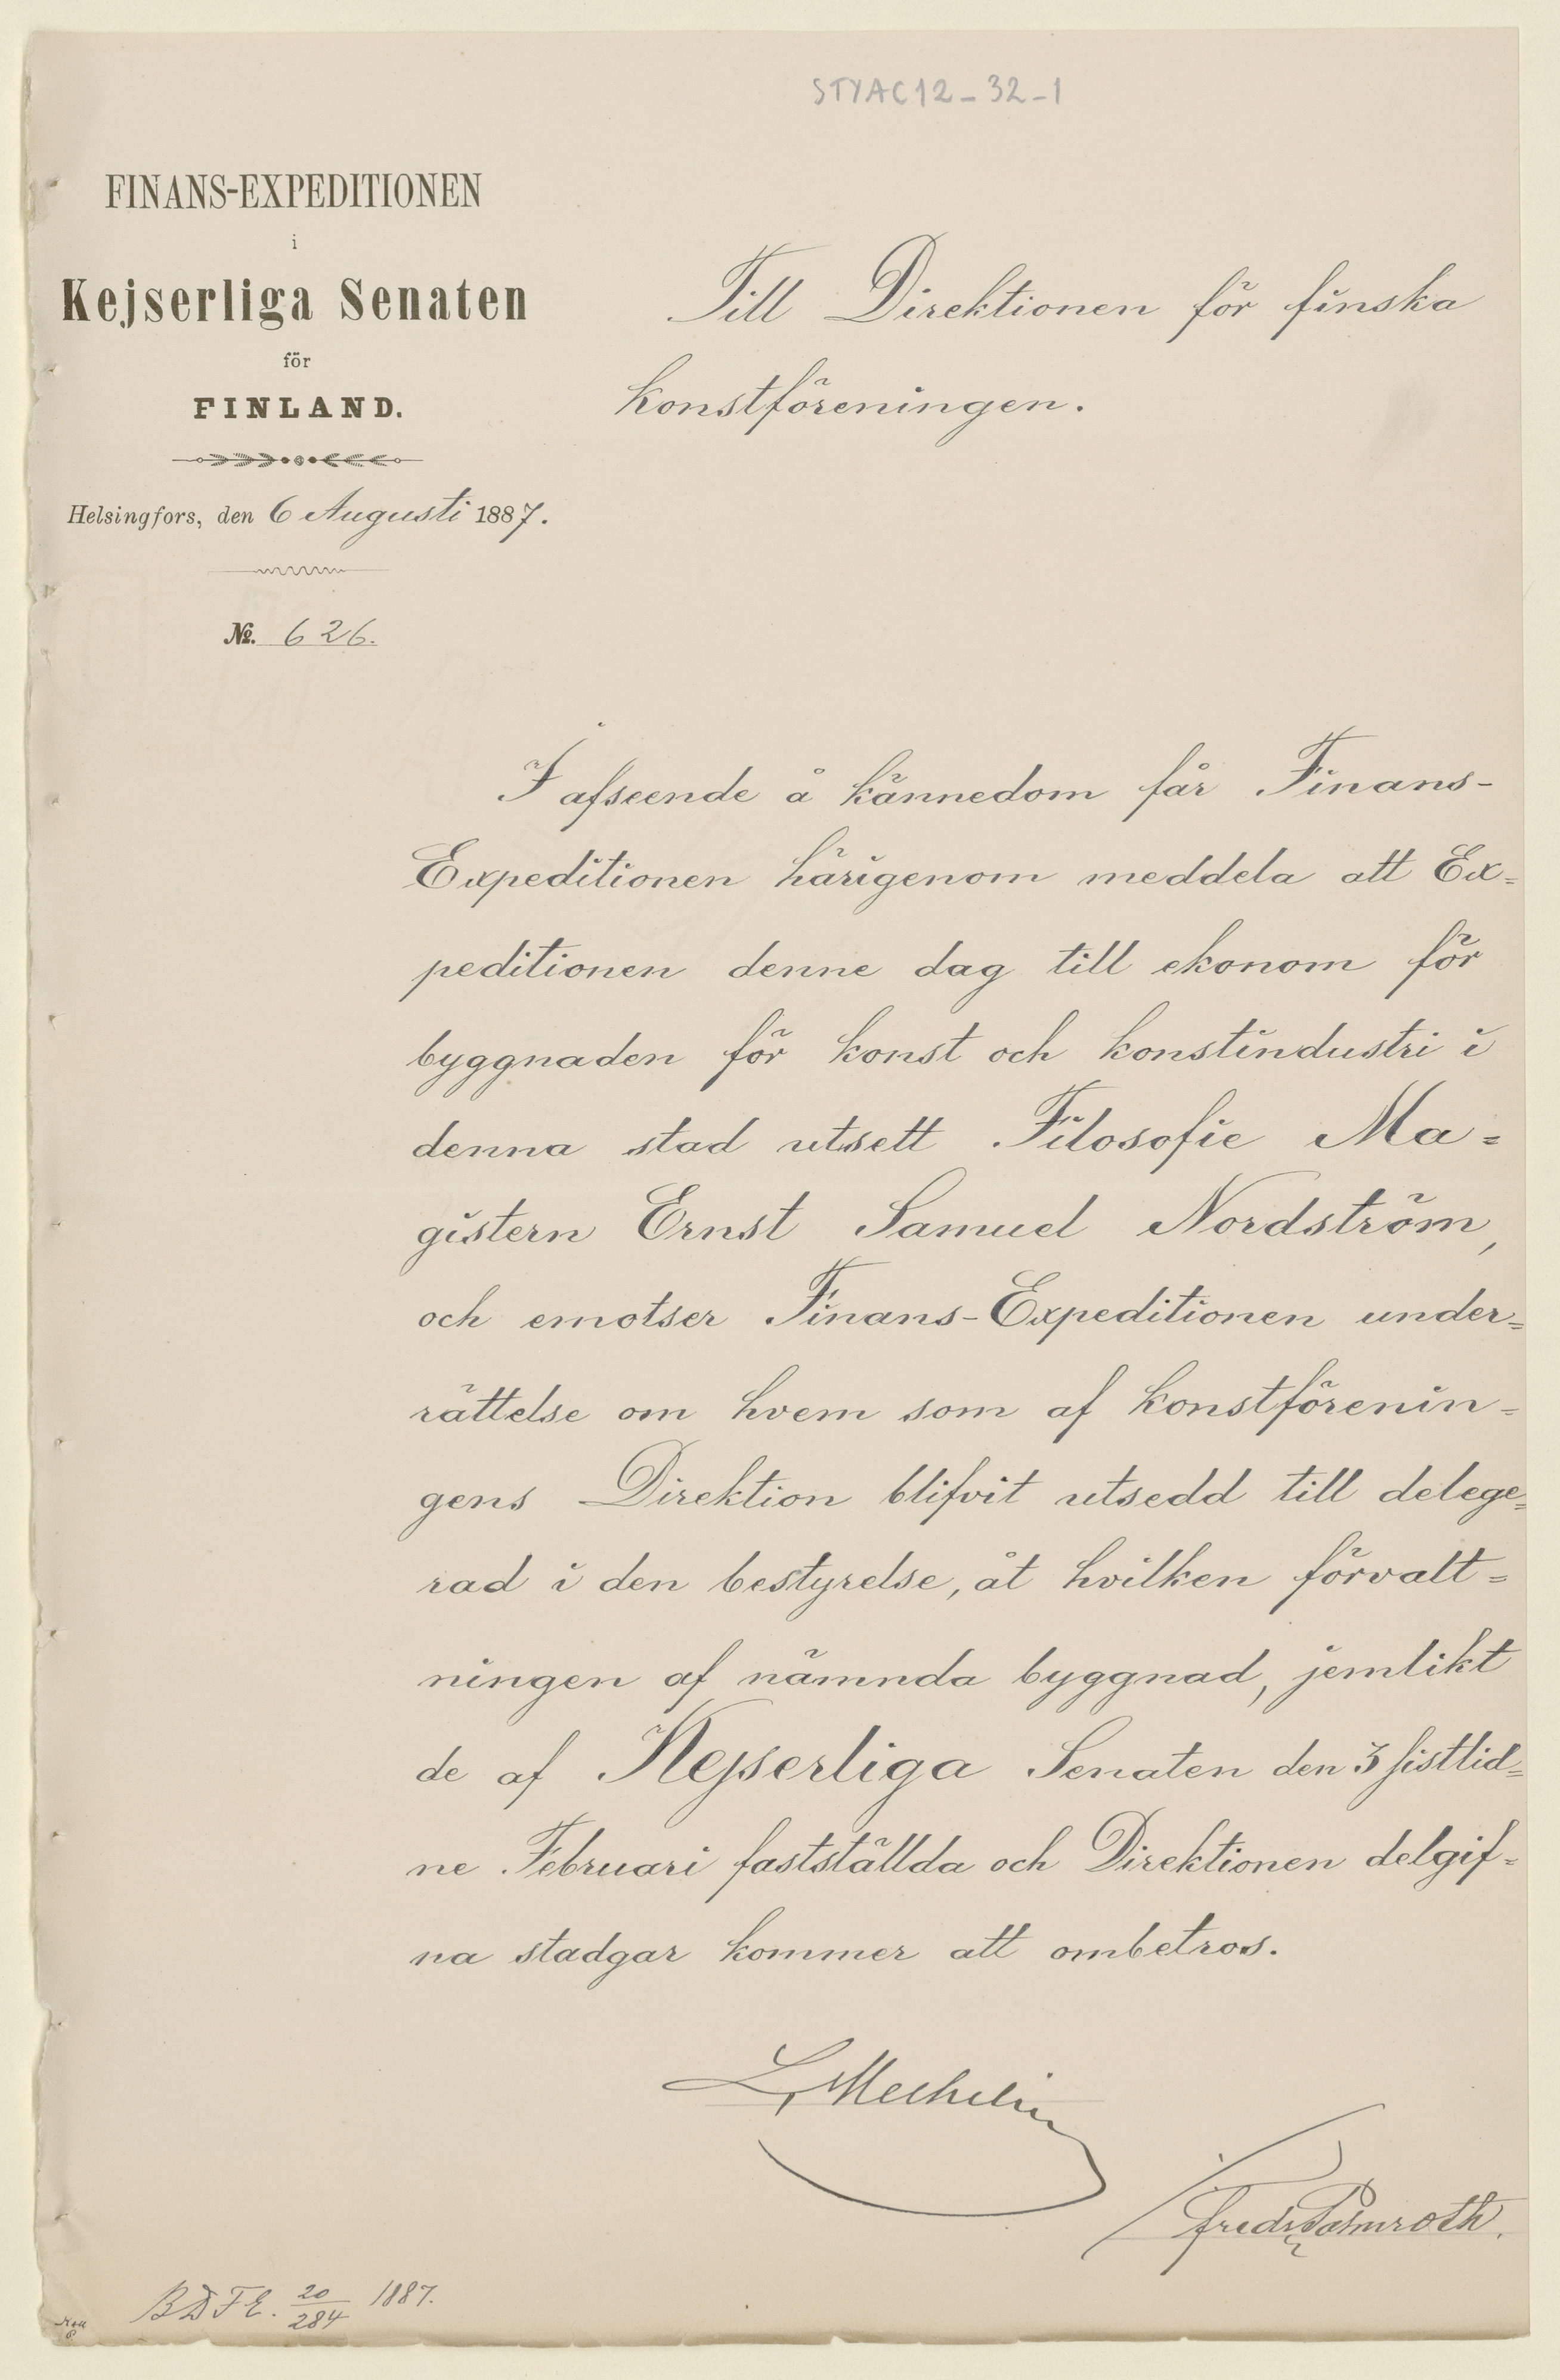 STYAC12-32-1
FINANS-EXPEDITIONEN
i
Kejserliga Senaten
för
FINLAND.
Helsingfors, den 6 Augusti 1887.
№. 626.
Till Direktionen för finska
Konstföreningen.
I afseende å kännedom får Finans-
Expeditionen härigenom meddela att Ex=
peditionen denne dag till ekonom för
byggnaden för konst och konstindustri i
denna stad utsett Filosofie Ma=
gistern Ernst Samuel Nordström,
och emotser Finans-Expeditionen under=
rättelse om hvem som af Konstförenin=
gens Direktion blifvit utsedd till delege=
rad i den bestyrelse, åt hvilken förvalt=
ningen af nämnda byggnad, jemlikt
de af Kejserliga Senaten den 3 sistlid=
ne Februari fastställda och Direktionen delgif=
na stadgar kommer att ombetros.
L. Mechelin
Fredr. Palmroth.
BDFE. 20/284 1887.